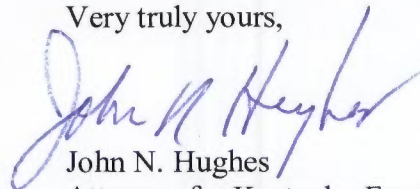 Very truly yours,
John N Hughes
John N. Hughes